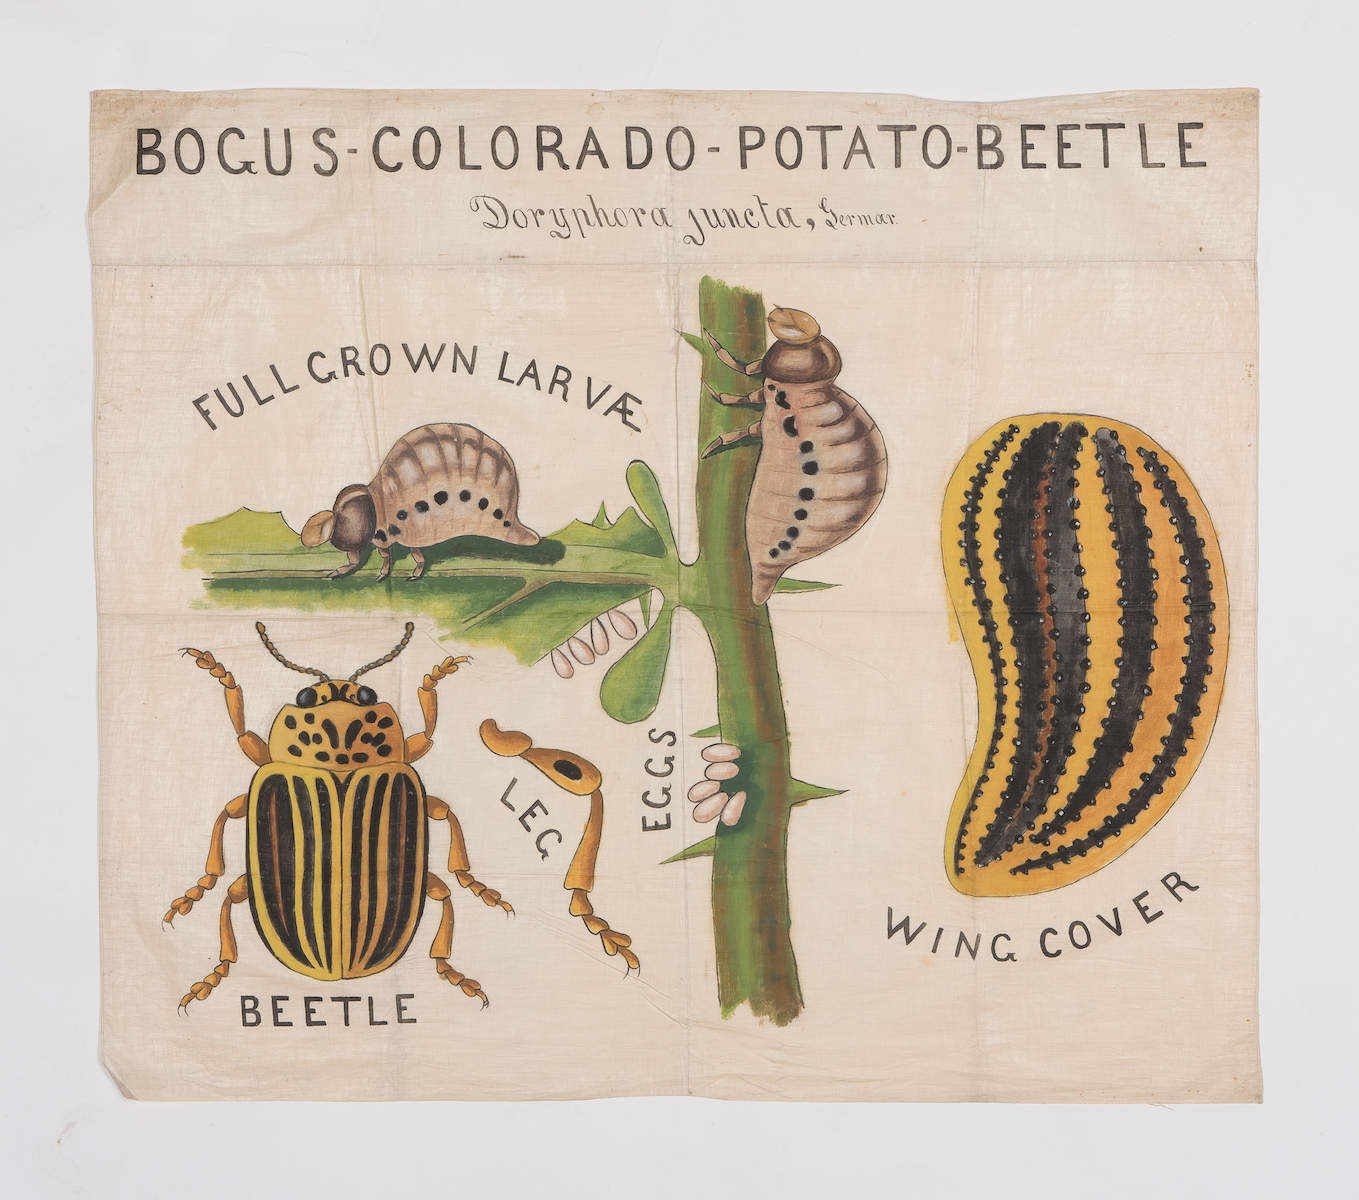 BOGUS-COLORADO-POTATO-BEETLE
Doryphora juncta, Germar.
FULL GROWN LARVÆ
EGGS
LEG
BEETLE
WING COVER